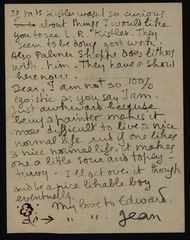 If Mrs Kistler wasnt so curious
about things I would like
you to see L.R. "Kistler. They
seem to be doing good work.
Also Palmer Schoppe does lithos
with him. They have a show
here now.
Dear, I am not so 100%
egoistic as you say I am.
Just awkward because
being a painter makes it
more difficult to live a nice
normal life and if one likes
a nice normal life, it makes
one a little sour and topsy-
turvy - I'll get over it though
and be a nice likable boy
eventually.
my love to Edward.
" " "
Jean